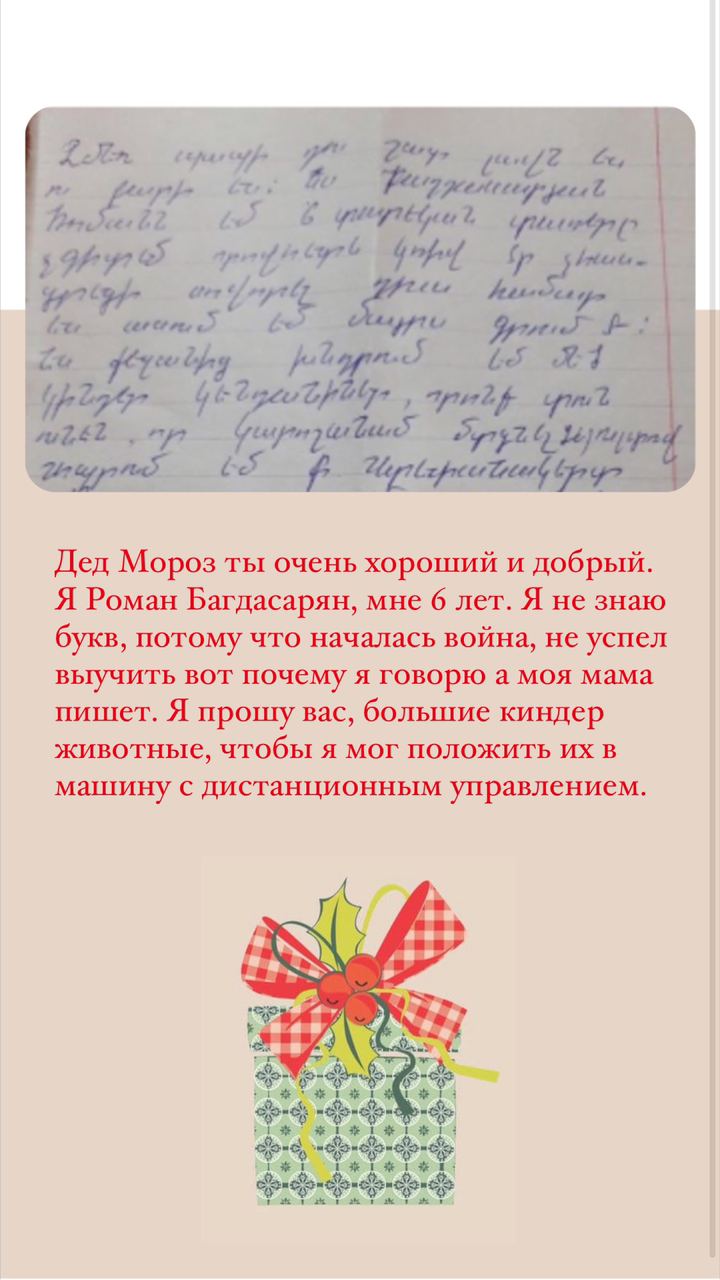 Ձմեռ պապի դու շատ լավն ես
ու բարի ես։ Ես Բաղդասարյան
Ռոմանն եմ 6 տարեկան տառերը
չգիտեմ որովհետև կռիվ էր չհաս-
ցրեցի սովորել դրա համար
ես ասում եմ մայրս գրում է։
Ես քեզանից խնդրում եմ մեծ
կինդեր կենդանիներ, որոնք տուն
ունեն, որ կարողանամ մտցնել
եմ ք Ստեփանակերտ
Дед Мороз ты очень хороший и добрый.
Я Роман Багдасарян, мне 6 лет. Я не знаю
букв, потому что началась война, не успел
выучить вот почему я говорю а моя мама
пишет. Я прошу вас, большие киндер
животные, чтобы я мог положить их в
машину с дистанционным управлением.